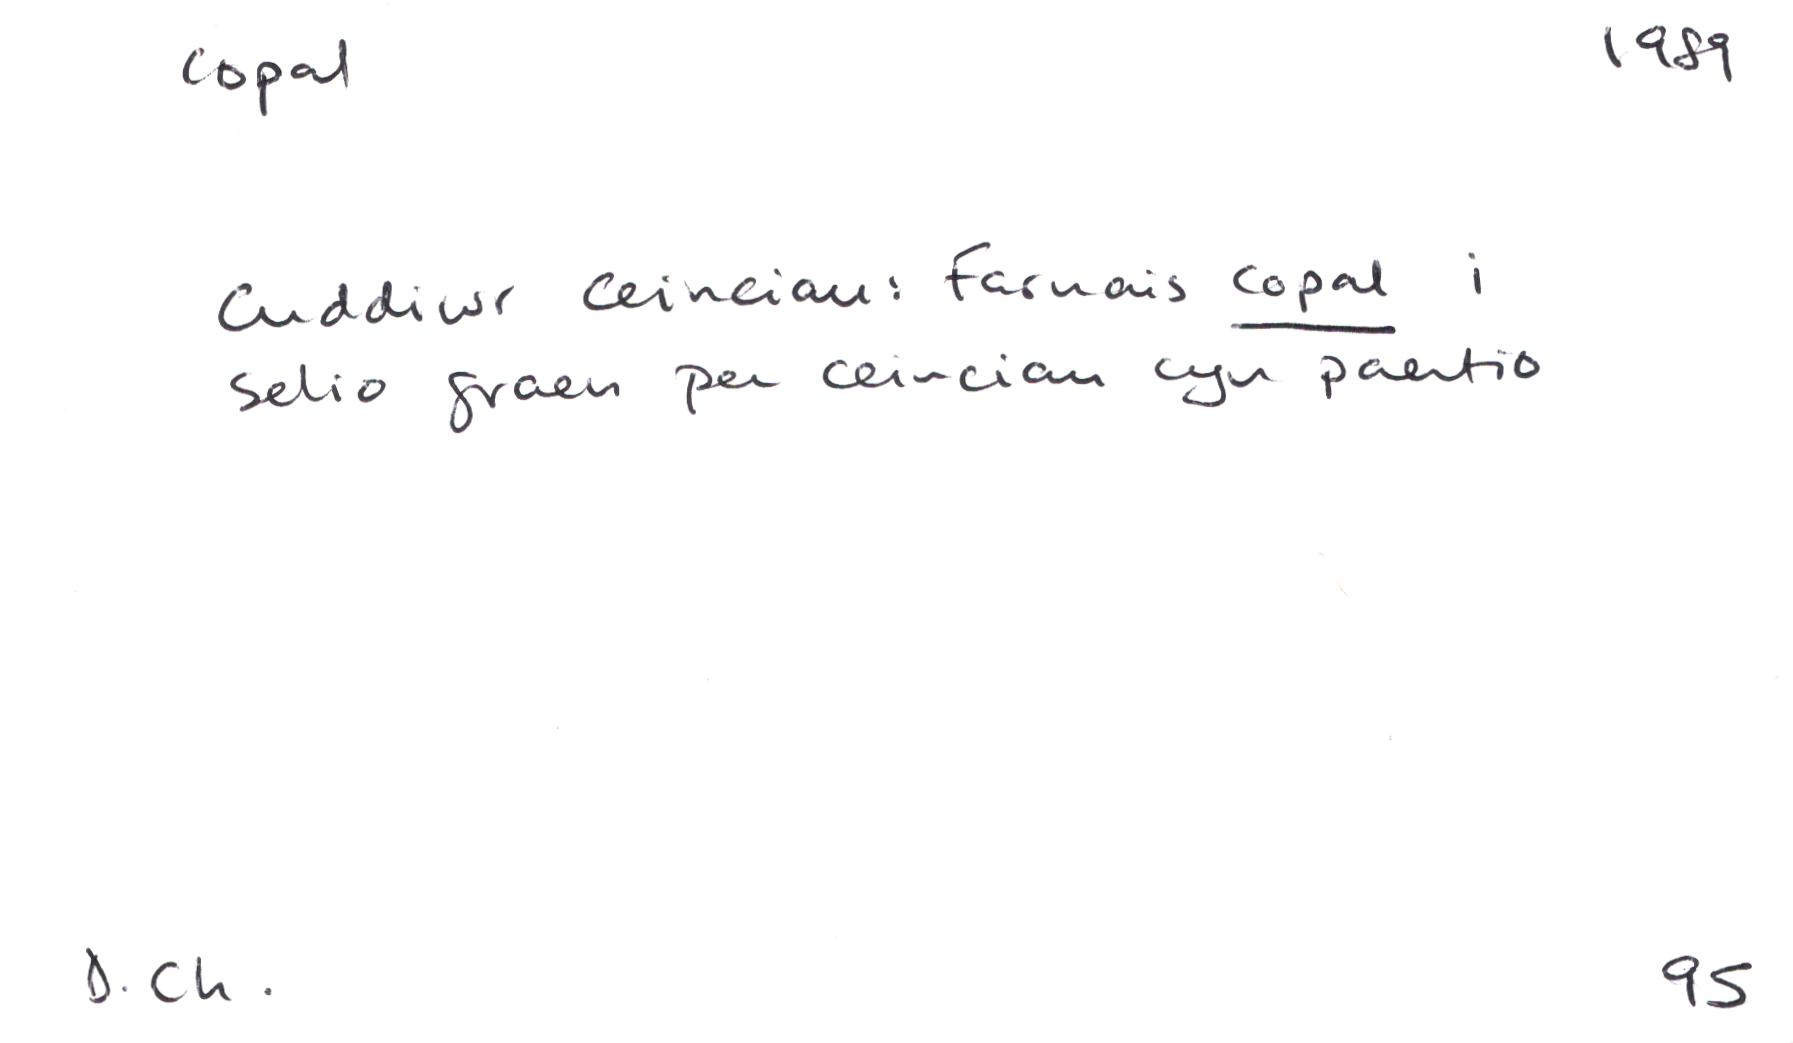 copal 1989
Cuddiwr ceinciau: Farnais copal i
selio graen pen ceinciau cyn paentio
D. Ch. 95